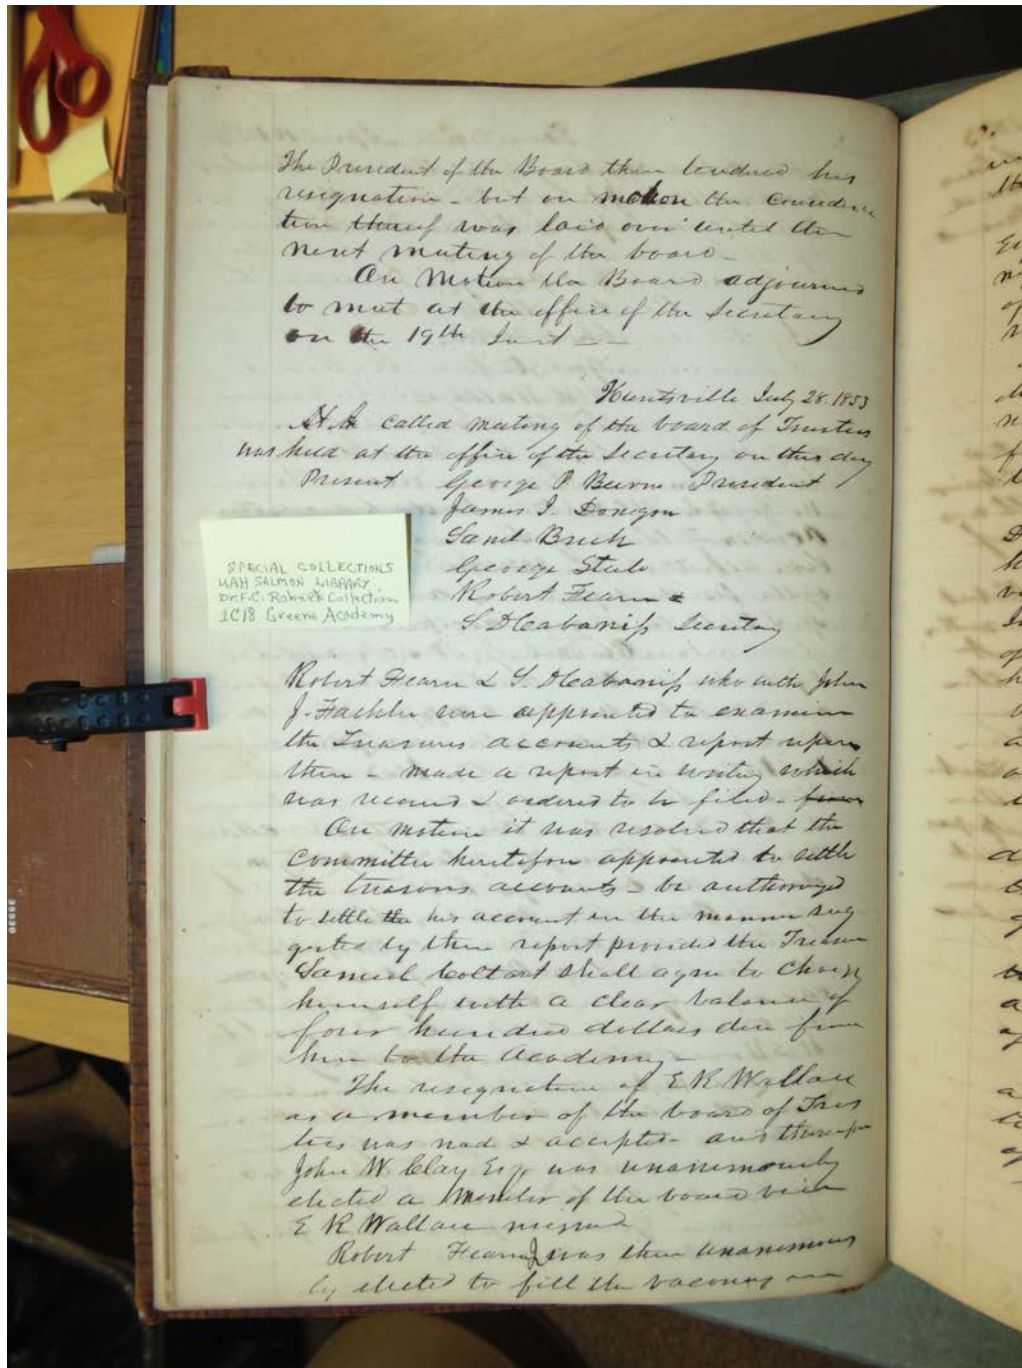 The President of the Board then tendered his
resignation - but on motion the considera
tion thereof was laid over until the
next meeting of the board -
On Motion the Board adjourned
to meet at the office of the Secretary
on the 19th Inst -
Huntsville July 28. 1853
At A called meeting of the board of Trustees
was held at the office of the Secretary on this day
Present George P. Beirne President
James J. Donegan
Saml Breck
George Steele
Robert Fearn &
S. D Cabaniss Secretary
SPECIAL COLLECTIONS
UAH SALMON LIBRARY
Dr. F.C. Roberts Collection
1C18 Greene Academy
Robert Fearn & S. D Cabaniss who with John
J. Fackler were appointed to examine
the Treasurers accounts & report upon
them - made a report in writing which
was received & ordered to be filed -
On motion it was resolved that the
committee heretofore appointed to settle
the treasurers accounts - be authorized
to settle the his account in the manner sug
gested by their report provided the Treasurer
Samuel Coltart shall agree to charge
himself with a clear balance of
four hundred dollars due from
him to the Academy -
The resignation of E R Wallace
as a member of the board of Trus
tees was read & accepted - and thereupon
John W. Clay Esqr was unanimously
elected a Member of the board vice
E R Wallace resigned
Robert Fearn Jr was then unanimous
ly elected to fill the vacancy